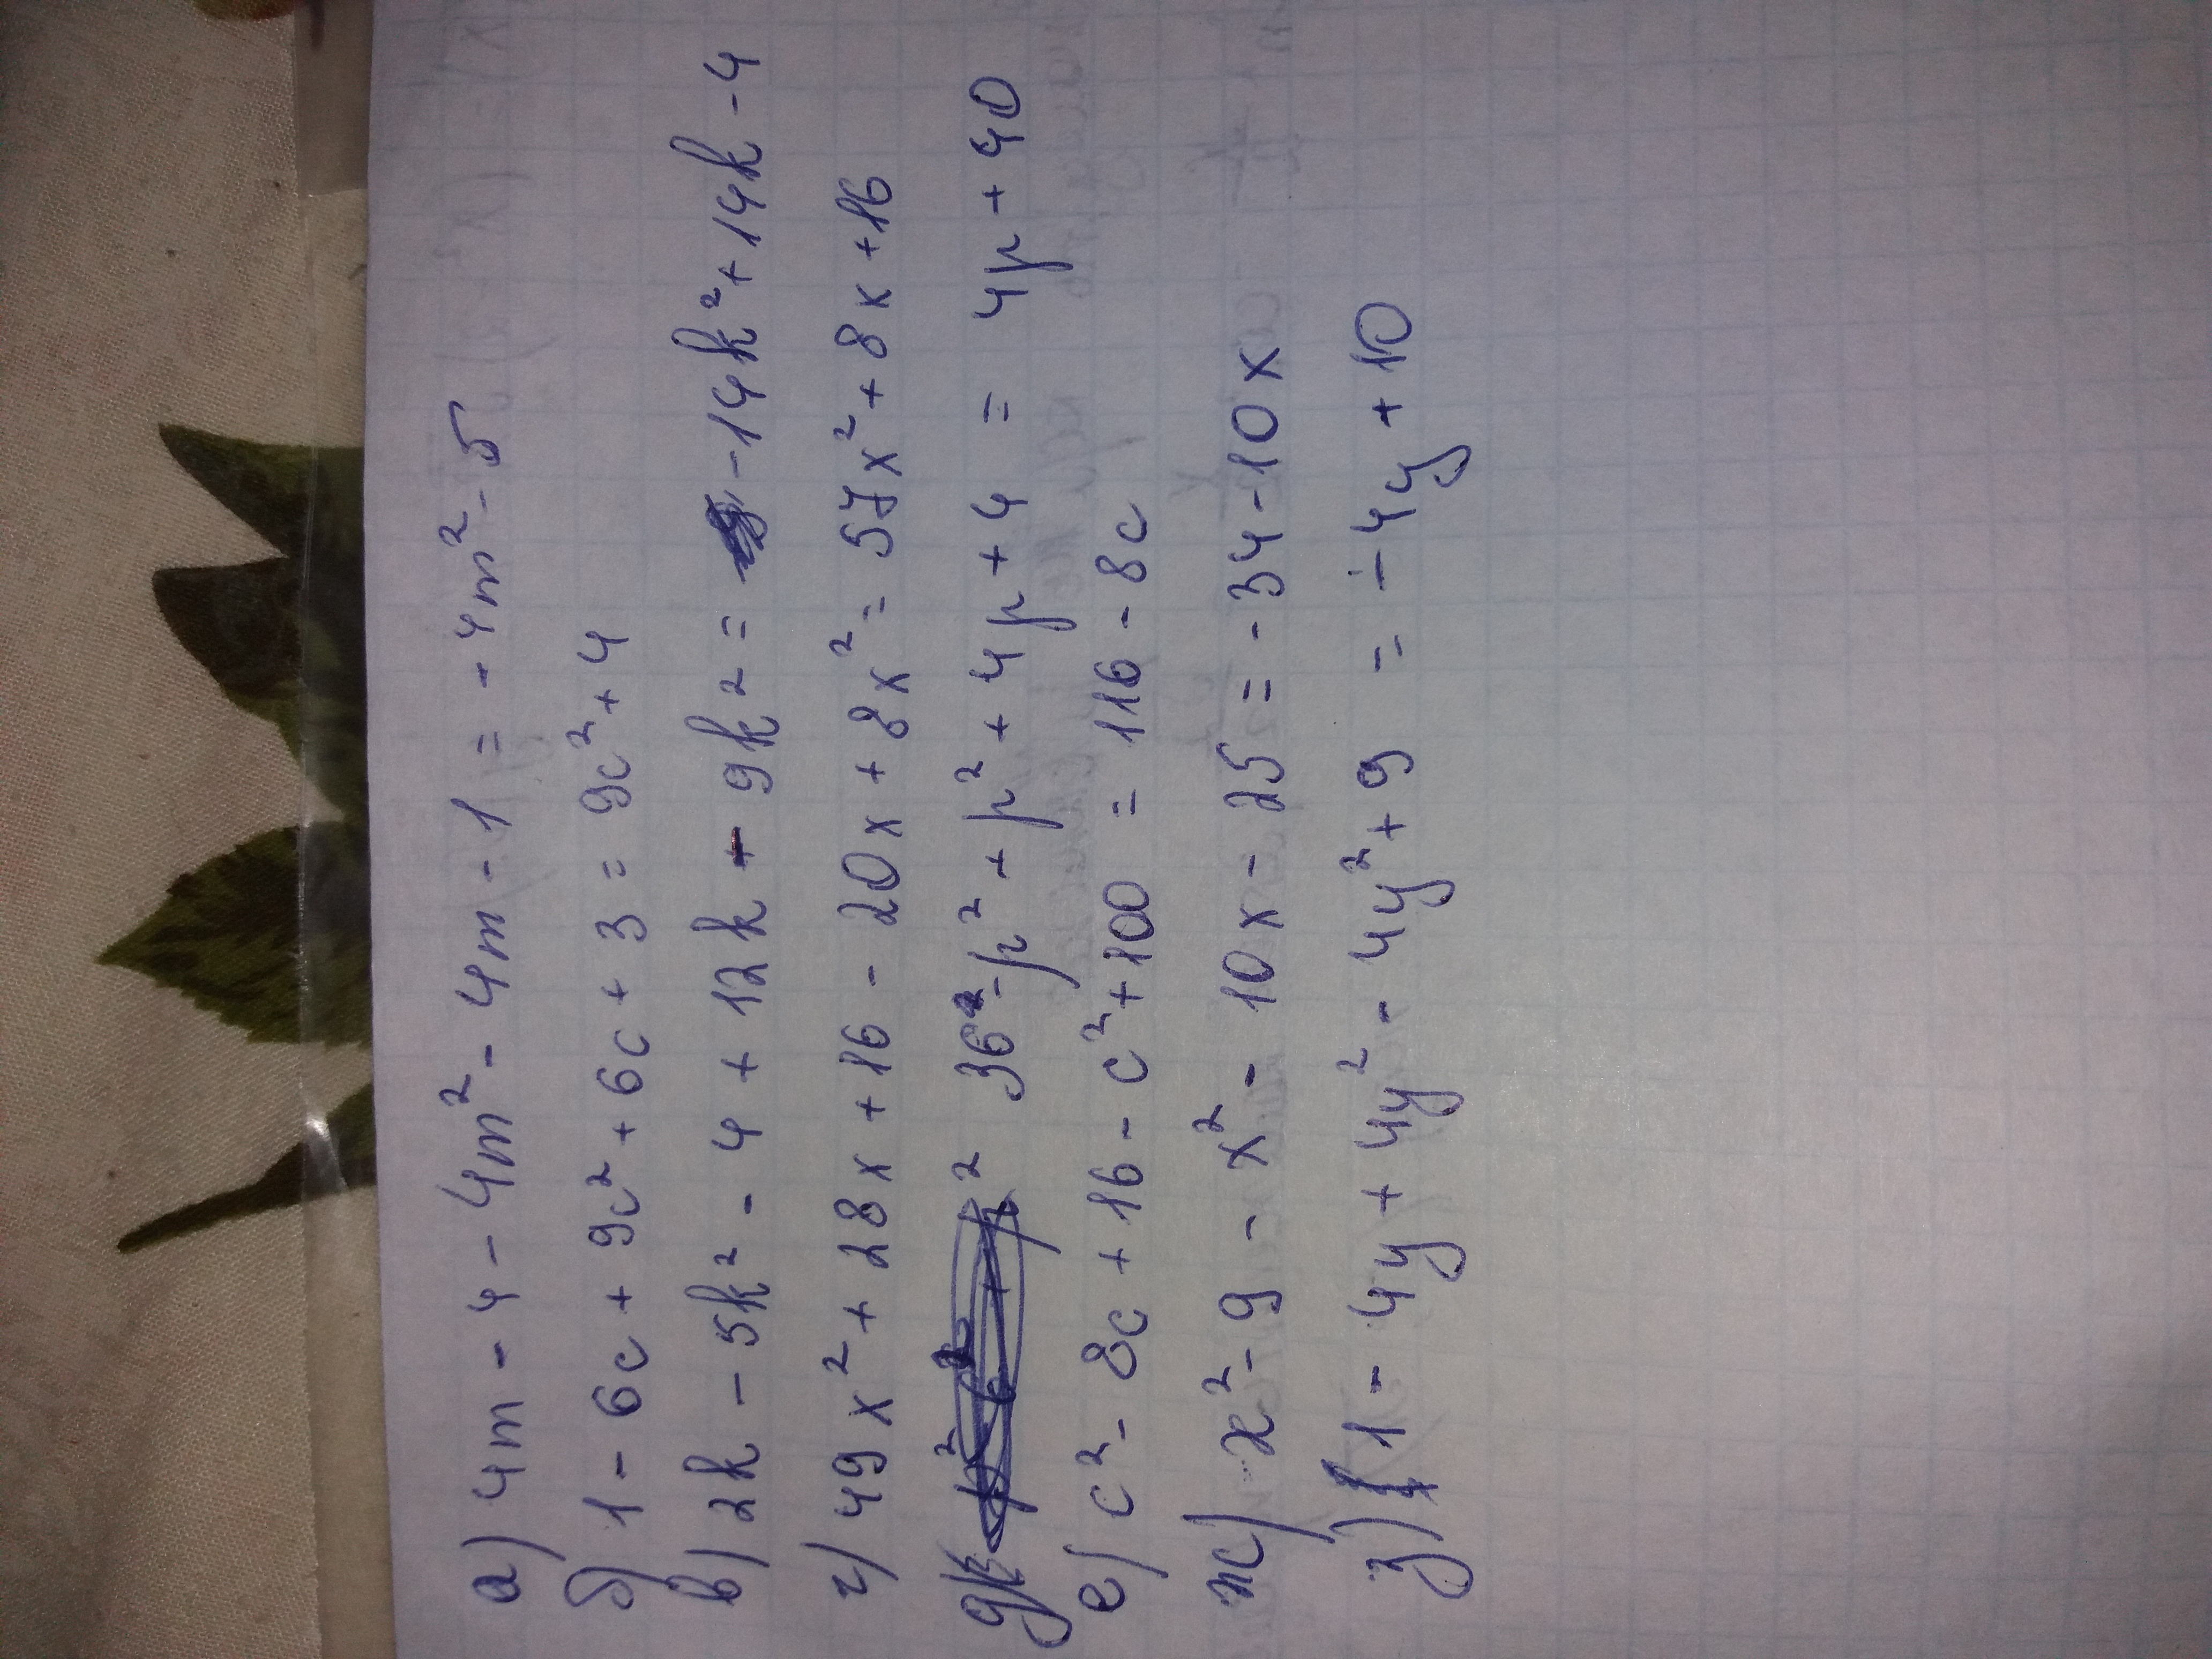 а) 4m - 4 - 4m² - 4m - 1 = - 4m² - 5
б) 1 - 6c + 9c² + 6c + 3 = 9c² + 4
в) 2k - 5k² - 4 + 12k - 9k² = -14k² + 14k - 4
г) 49x² + 28x + 16 - 20x + 8x² = 57x² + 8x + 16
д) 36 - p² + p² + 4p + 4 = 4p + 40
е) c² - 8c + 16 - c² + 100 = 116 - 8c
ж) x² - 9 - x² - 10x - 25 = - 34 - 10x
з) 1 - 4y + 4y² - 4y² + 9 = - 4y + 10